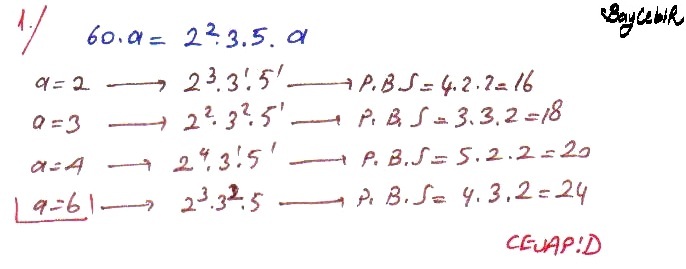 1./
BaycebiR
60.a = 2².3.5.a
a=2 → 2³.3¹.5¹ → P.B.S = 4.2.2=16
a=3 → 2².3².5¹ → P.B.S = 3.3.2=18
a=4 → 2⁴.3¹.5¹ → P.B.S = 5.2.2=20
a=6 → 2³.3².5 → P.B.S = 4.3.2=24
CEVAP:D